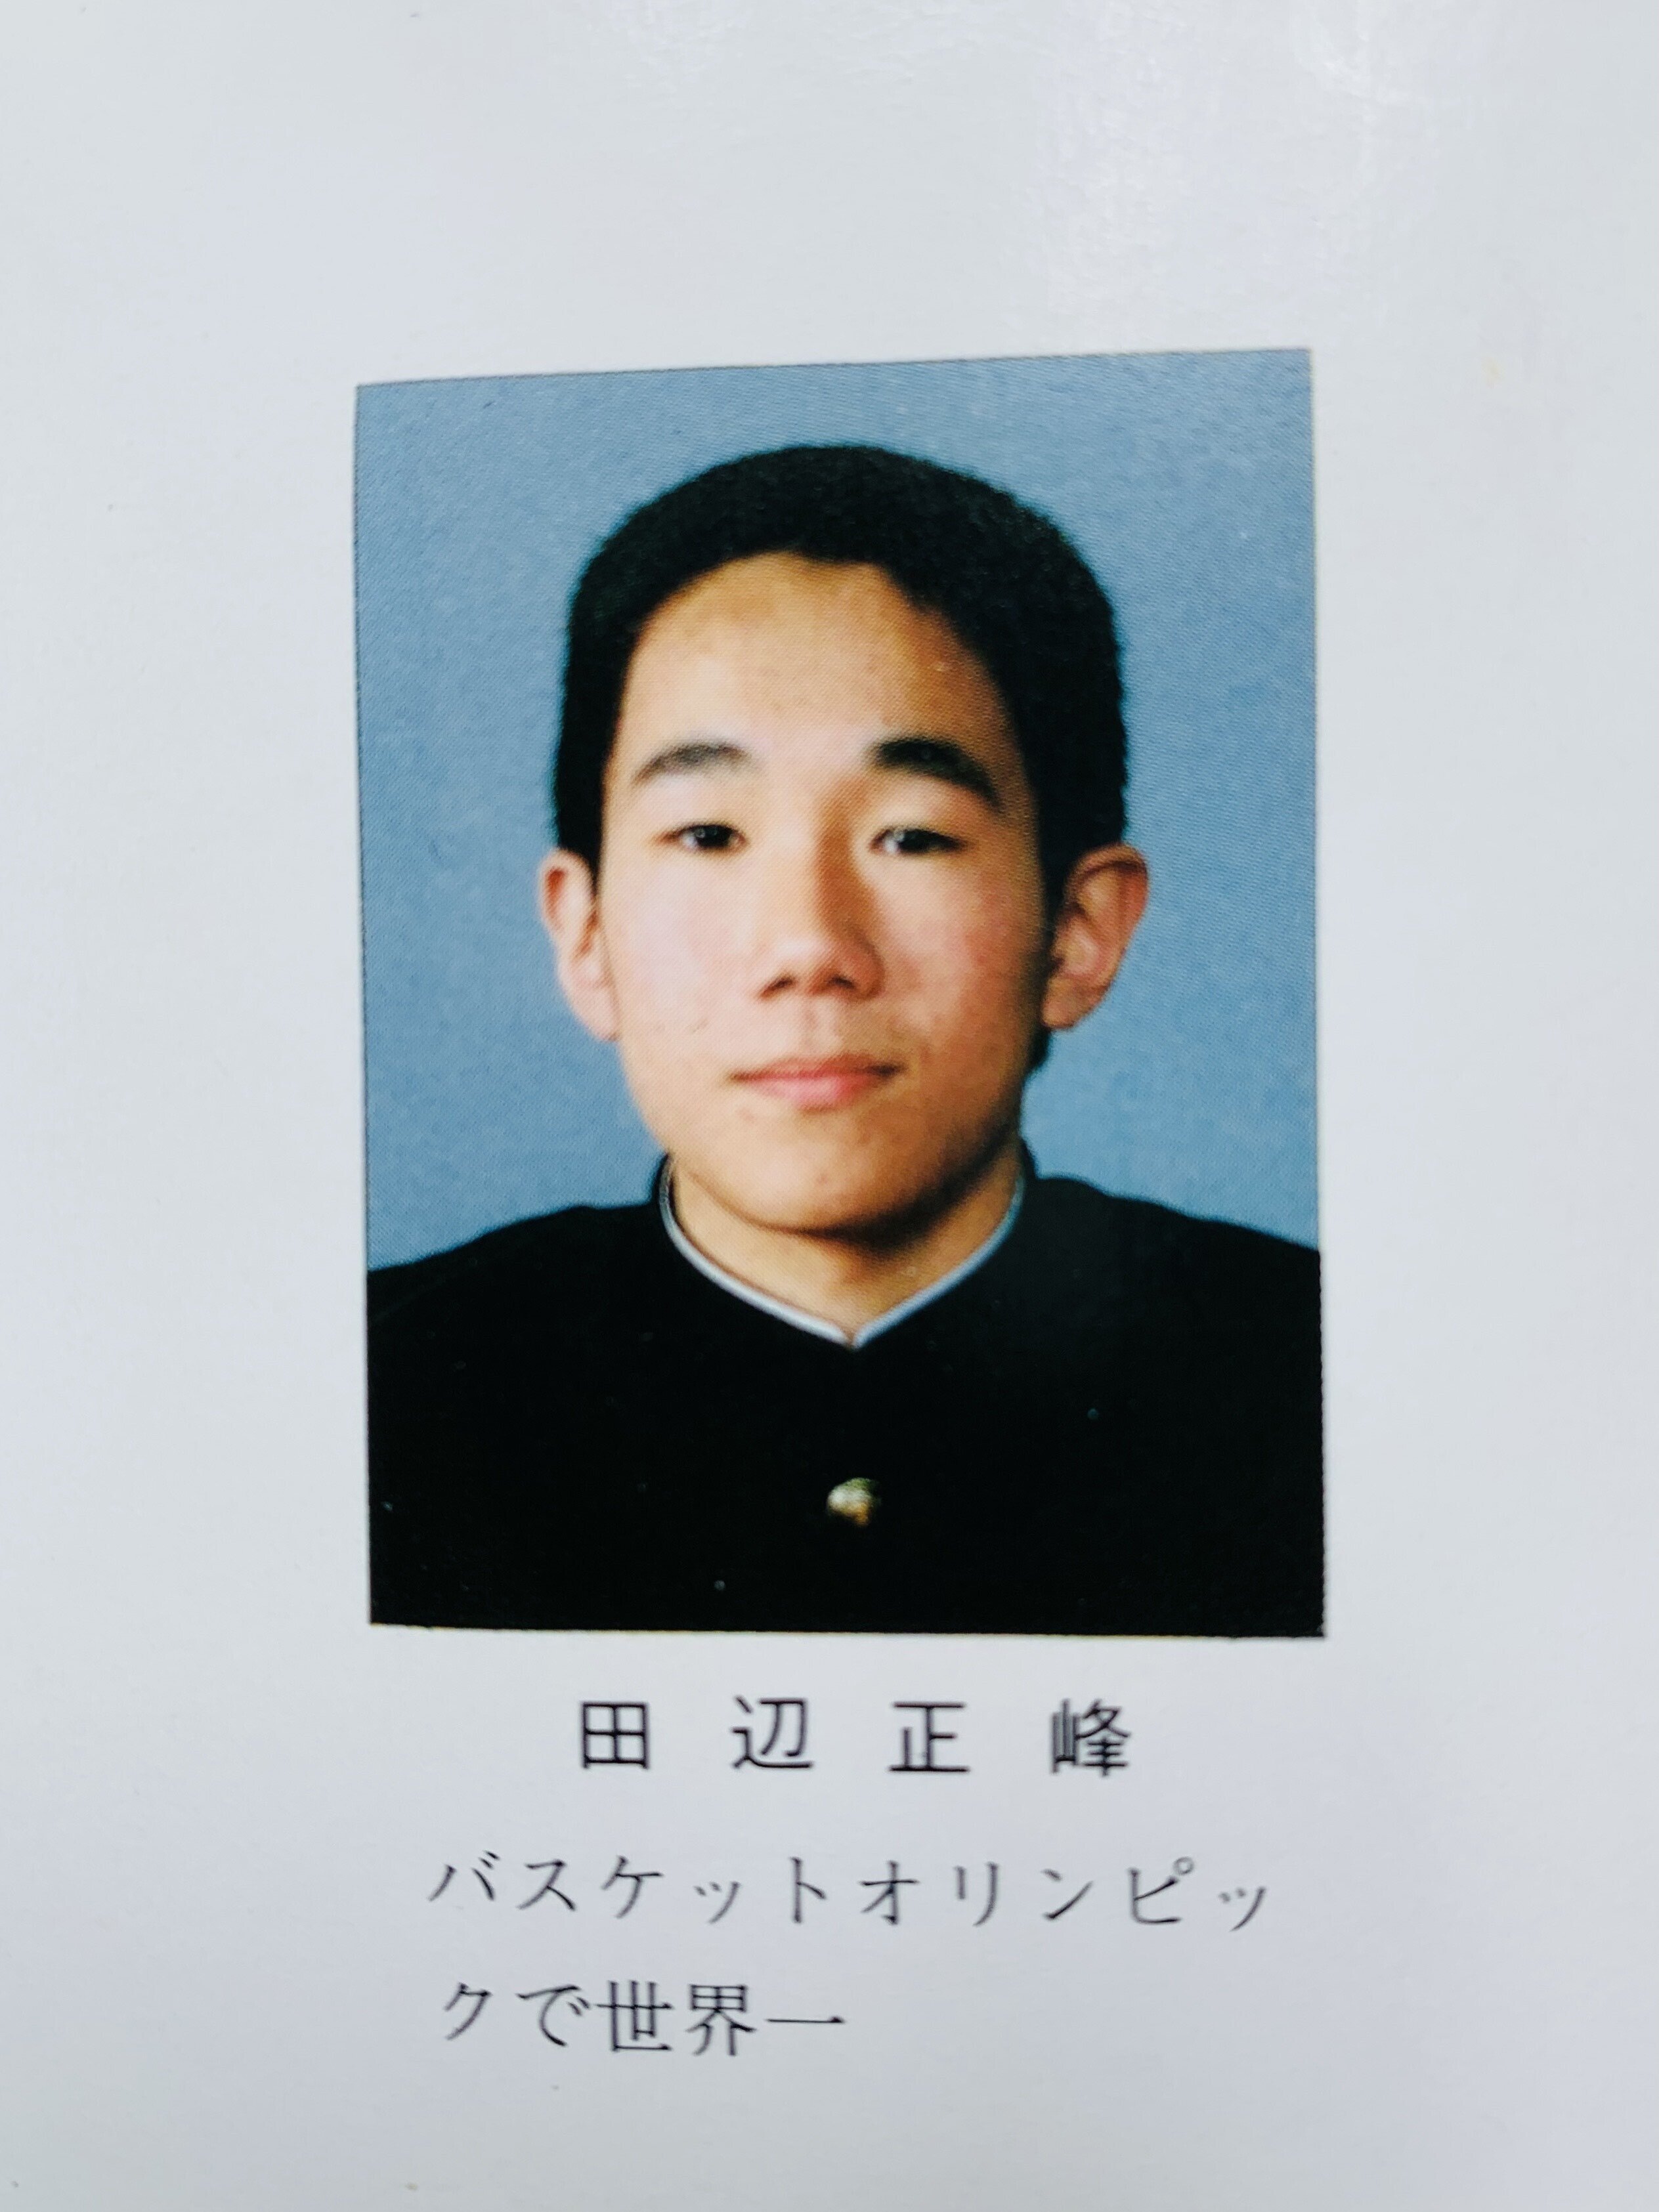 田辺正峰
バスケットオリンピッ
クで世界一